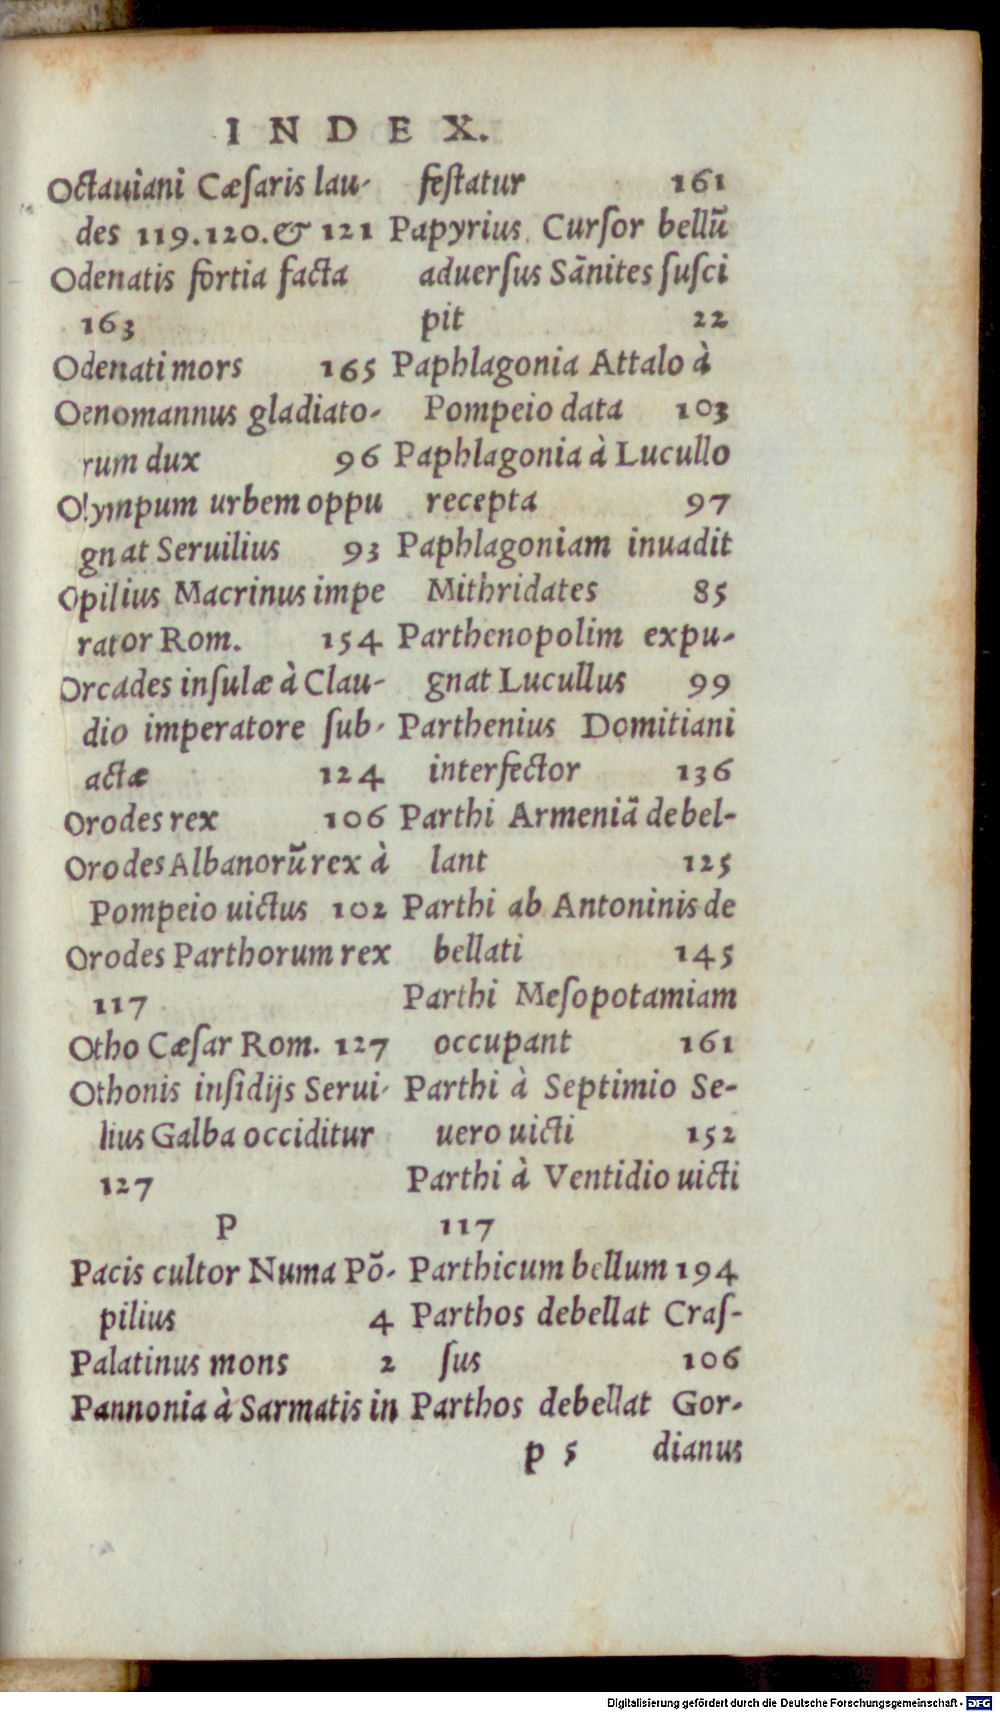 INDEX.
Octauiani Cæſaris lau-
des 119.120.& 121
Odenatis fortia facta
163
Odenati mors 165
Oenomannus gladiato-
rum dux 96
Olympum urbem oppu
gnat Seruilius 93
Opilius Macrinus impe
rator Rom. 154
Orcades inſulæ à Clau-
dio imperatore ſub-
actæ 124
Orodes rex 106
Orodes Albanorũ rex à
Pompeio uictus 102
Orodes Parthorum rex
117
Otho Cæſar Rom. 127
Othonis inſidijs Serui-
lius Galba occiditur
127
P
Pacis cultor Numa Põ-
pilius 4
Palatinus mons 2
Pannonia à Sarmatis in
feſtatur 161
Papyrius Curſor bellũ
aduerſus Sãnites ſuſci
pit 22
Paphlagonia Attalo à
Pompeio data 103
Paphlagonia à Lucullo
recepta 97
Paphlagoniam inuadit
Mithridates 85
Parthenopolim expu-
gnat Lucullus 99
Parthenius Domitiani
interfector 136
Parthi Armeniã debel-
lant 125
Parthi ab Antoninis de
bellati 145
Parthi Meſopotamiam
occupant 161
Parthi à Septimio Se-
uero uicti 152
Parthi à Ventidio uicti
117
Parthicum bellum 194
Parthos debellat Craſ-
ſus 106
Parthos debellat Gor-
p 5 dianus
Digitalisierung gefördert durch die Deutsche Forschungsgemeinschaft - DFG